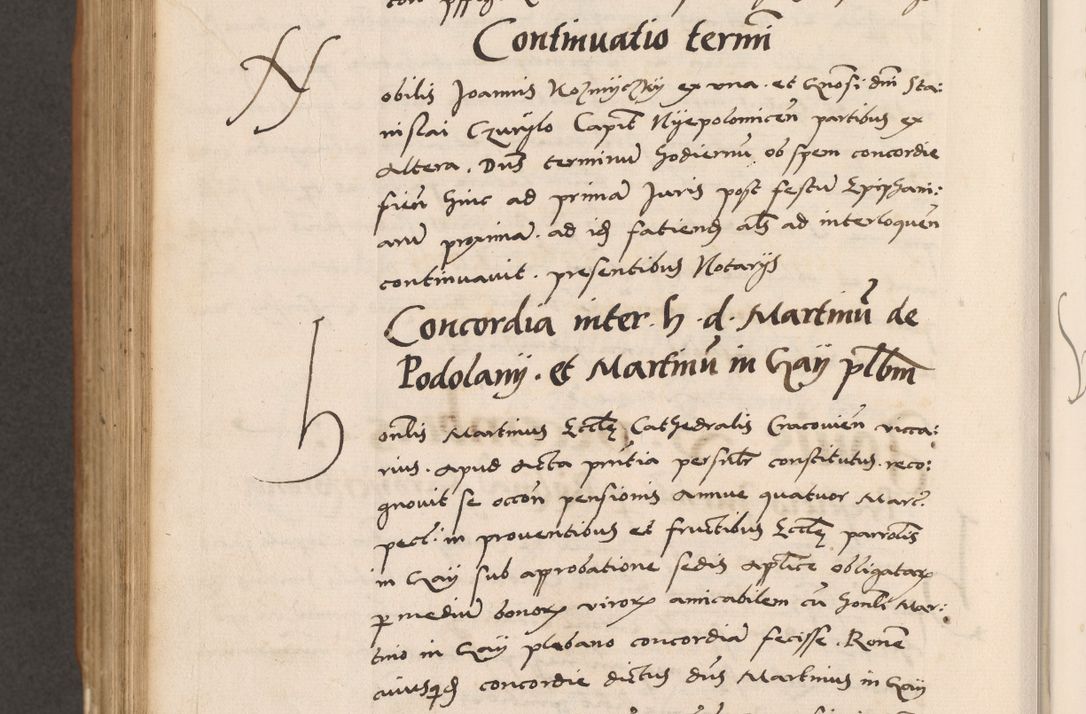 Continuatio termi
N
obilis Joannis ex una. et Gnosi dni Sta:
nislai Czurylo Capit Nyepolomicen partibus ex
Altera. Dns terminu hodiernu ob spem concordie
fieri hinc ad prima Juris post festu Epiphani:
aru proxima. ad id faciend als ad interloquen
continuavit. presentibus Notarijs
Concordia inter h. d. Martinu de
Podolany. et Martinu in Gay plbm
h
onlis Martinus Eccle Cathedralis Cracovien vicca:
rius. Apud Acta pntia personlr constitutus. reco:
gnovit se occon pensionis Annue quatuor Marc.
pecl: in proventibus et fructibus Eccle parrolis
in Gay sub approbatione sedis Aplice obligatar
p mediu bonor viror amicabilem cu honli Mar:
tino in Gay plebano concordia fecisse. Rone
cuiusqd concordie dictus dns Martinus in Gay